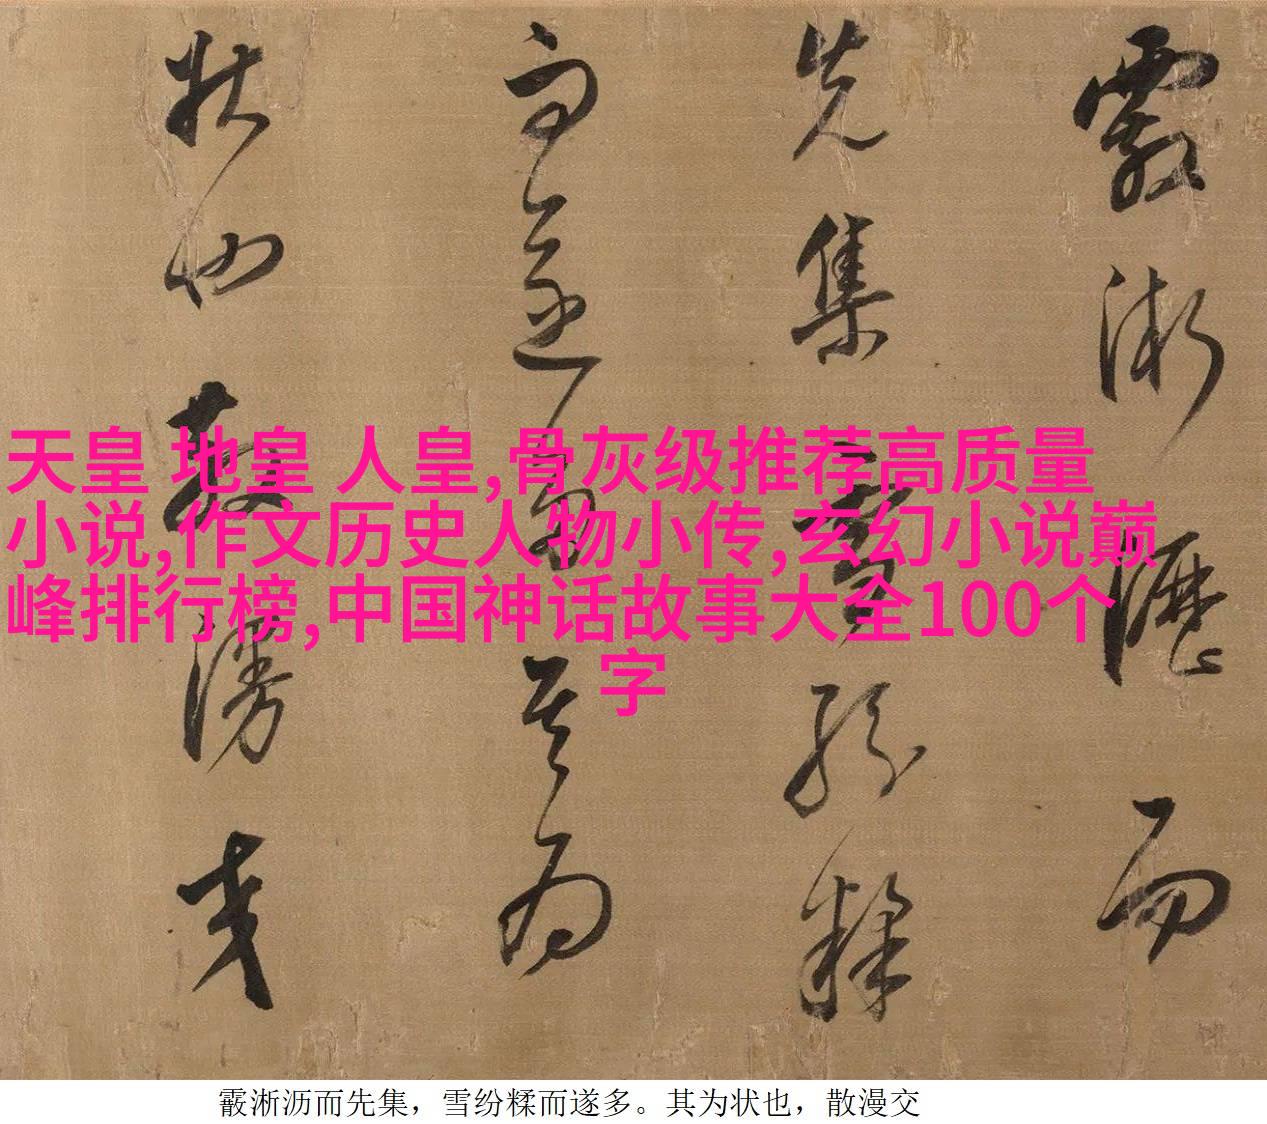 霰淅瀝而
先集雪紛糅
而遂多其為
状也散漫交
天皇 地皇 人皇,骨灰级推荐高质量
小说,作文历史人物小传,玄幻小说巅
峰排行榜,中国神话故事大全100个
字
霰淅沥而先集，雪纷糅而遂多。其为状也，散漫交